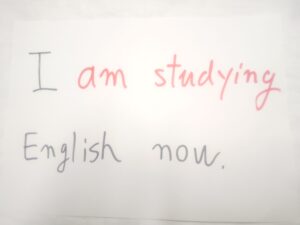 I am studying
English now.